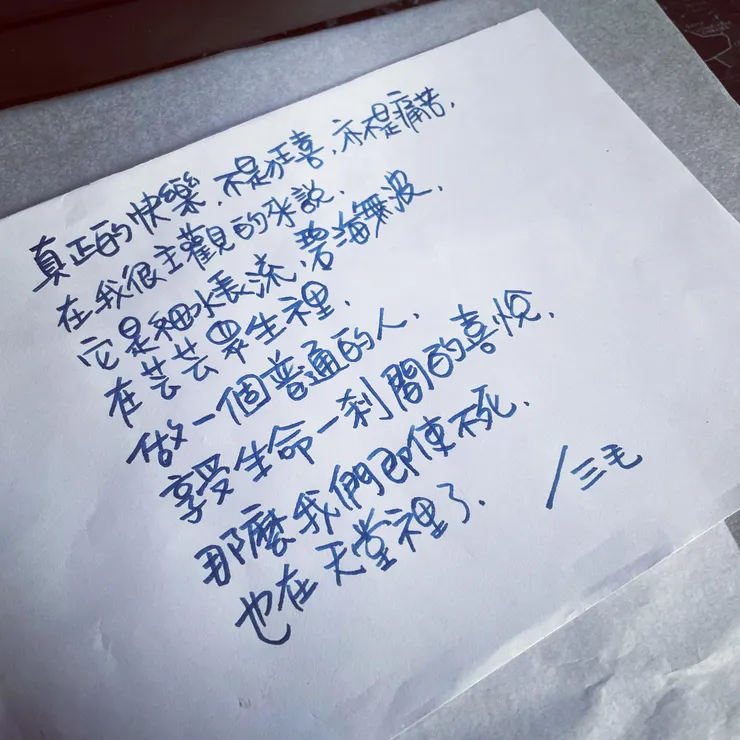 真正的快樂,不是狂喜,亦不是痛苦,
在我很主觀的來說,
它是細水長流,碧海無波,
在芸芸眾生裡,
做一個普通的人,
享受生命一剎間的喜悅,
那麼我們即使不死,
也在天堂裡了. /三毛